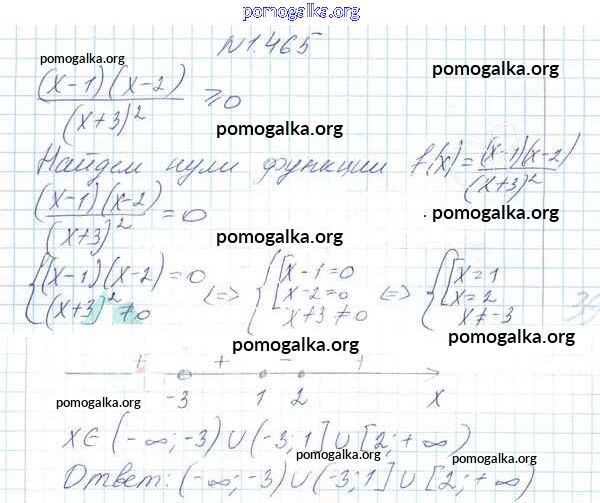 pomogalka.org
N 1.465
pomogalka.org
pomogalka.org
(x-1)(x-2)/(x+3)² ≥ 0
pomogalka.org
Найдем нули функции f(x) = (x-1)(x-2)/(x+3)²
(x-1)(x-2)/(x+3)² = 0
pomogalka.org
pomogalka.org
{ (x-1)(x-2) = 0 <=> { [ x-1 = 0 <=> { [ x = 1
(x+3)² ≠ 0 x-2 = 0 x = 2
x+3 ≠ 0 x ≠ -3
pomogalka.org
pomogalka.org
+ + - +
-3 1 2 x
pomogalka.org
pomogalka.org
x ∈ (-∞; -3) ∪ (-3; 1] ∪ [2; +∞)
pomogalka.org
pomogalka.org
Ответ: (-∞; -3) ∪ (-3; 1] ∪ [2; +∞)